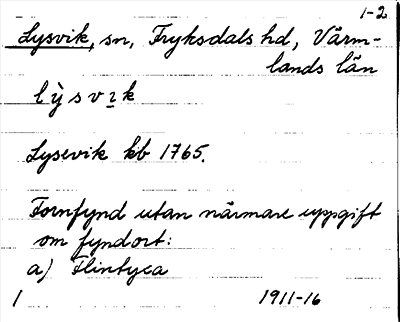 1-2
Lysvik, sn, Fryksdals hd, Värm-
lands län
lỳsvɪk
Lysevik kb 1765.
Fornfynd utan närmare uppgift
om fyndort:
a) Flintyxa
1 1911-16